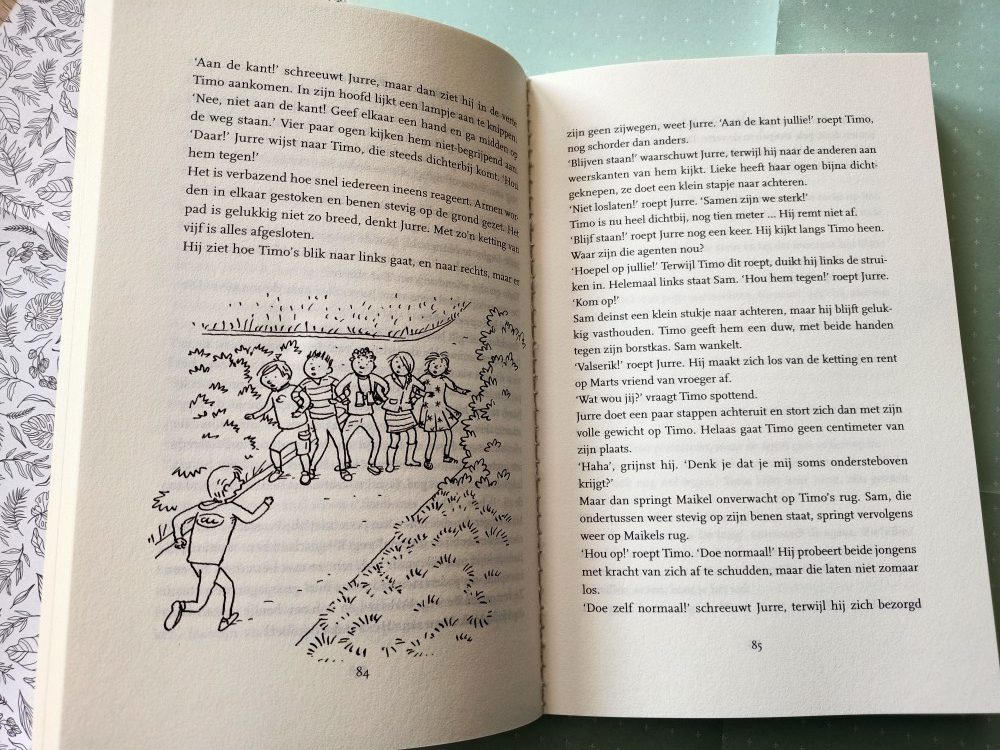 ‘Aan de kant!’ schreeuwt Jurre, maar dan ziet hij in de verte
Timo aankomen. In zijn hoofd lijkt een lampje aan te knippen.
‘Nee, niet aan de kant! Geef elkaar een hand en ga midden op
de weg staan.’ Vier paar ogen kijken hem niet-begrijpend aan.
‘Daar!’ Jurre wijst naar Timo, die steeds dichterbij komt. ‘Hou
hem tegen!’
Het is verbazend hoe snel iedereen ineens reageert. Armen wor-
den in elkaar gestoken en benen stevig op de grond gezet. Het
pad is gelukkig niet zo breed, denkt Jurre. Met zo’n ketting van
vijf is alles afgesloten.
Hij ziet hoe Timo’s blik naar links gaat, en naar rechts, maar er
84
zijn geen zijwegen, weet Jurre. ‘Aan de kant jullie!’ roept Timo,
nog schorder dan anders.
‘Blijven staan!’ waarschuwt Jurre, terwijl hij naar de anderen aan
weerskanten van hem kijkt. Lieke heeft haar ogen bijna dicht-
geknepen, ze doet een klein stapje naar achteren.
‘Niet loslaten!’ roept Jurre. ‘Samen zijn we sterk!’
Timo is nu heel dichtbij, nog tien meter ... Hij remt niet af.
‘Blijf staan!’ roept Jurre nog een keer. Hij kijkt langs Timo heen.
Waar zijn die agenten nou?
‘Hoepel op jullie!’ Terwijl Timo dit roept, duikt hij links de strui-
ken in. Helemaal links staat Sam. ‘Hou hem tegen!’ roept Jurre.
‘Kom op!’
Sam deinst een klein stukje naar achteren, maar hij blijft geluk-
kig vasthouden. Timo geeft hem een duw, met beide handen
tegen zijn borstkas. Sam wankelt.
‘Valserik!’ roept Jurre. Hij maakt zich los van de ketting en rent
op Marts vriend van vroeger af.
‘Wat wou jij?’ vraagt Timo spottend.
Jurre doet een paar stappen achteruit en stort zich dan met zijn
volle gewicht op Timo. Helaas gaat Timo geen centimeter van
zijn plaats.
‘Haha’, grijnst hij. ‘Denk je dat je mij soms ondersteboven
krijgt?’
Maar dan springt Maikel onverwacht op Timo’s rug. Sam, die
ondertussen weer stevig op zijn benen staat, springt vervolgens
weer op Maikels rug.
‘Hou op!’ roept Timo. ‘Doe normaal!’ Hij probeert beide jongens
met kracht van zich af te schudden, maar die laten niet zomaar
los.
‘Doe zelf normaal!’ schreeuwt Jurre, terwijl hij zich bezorgd
85